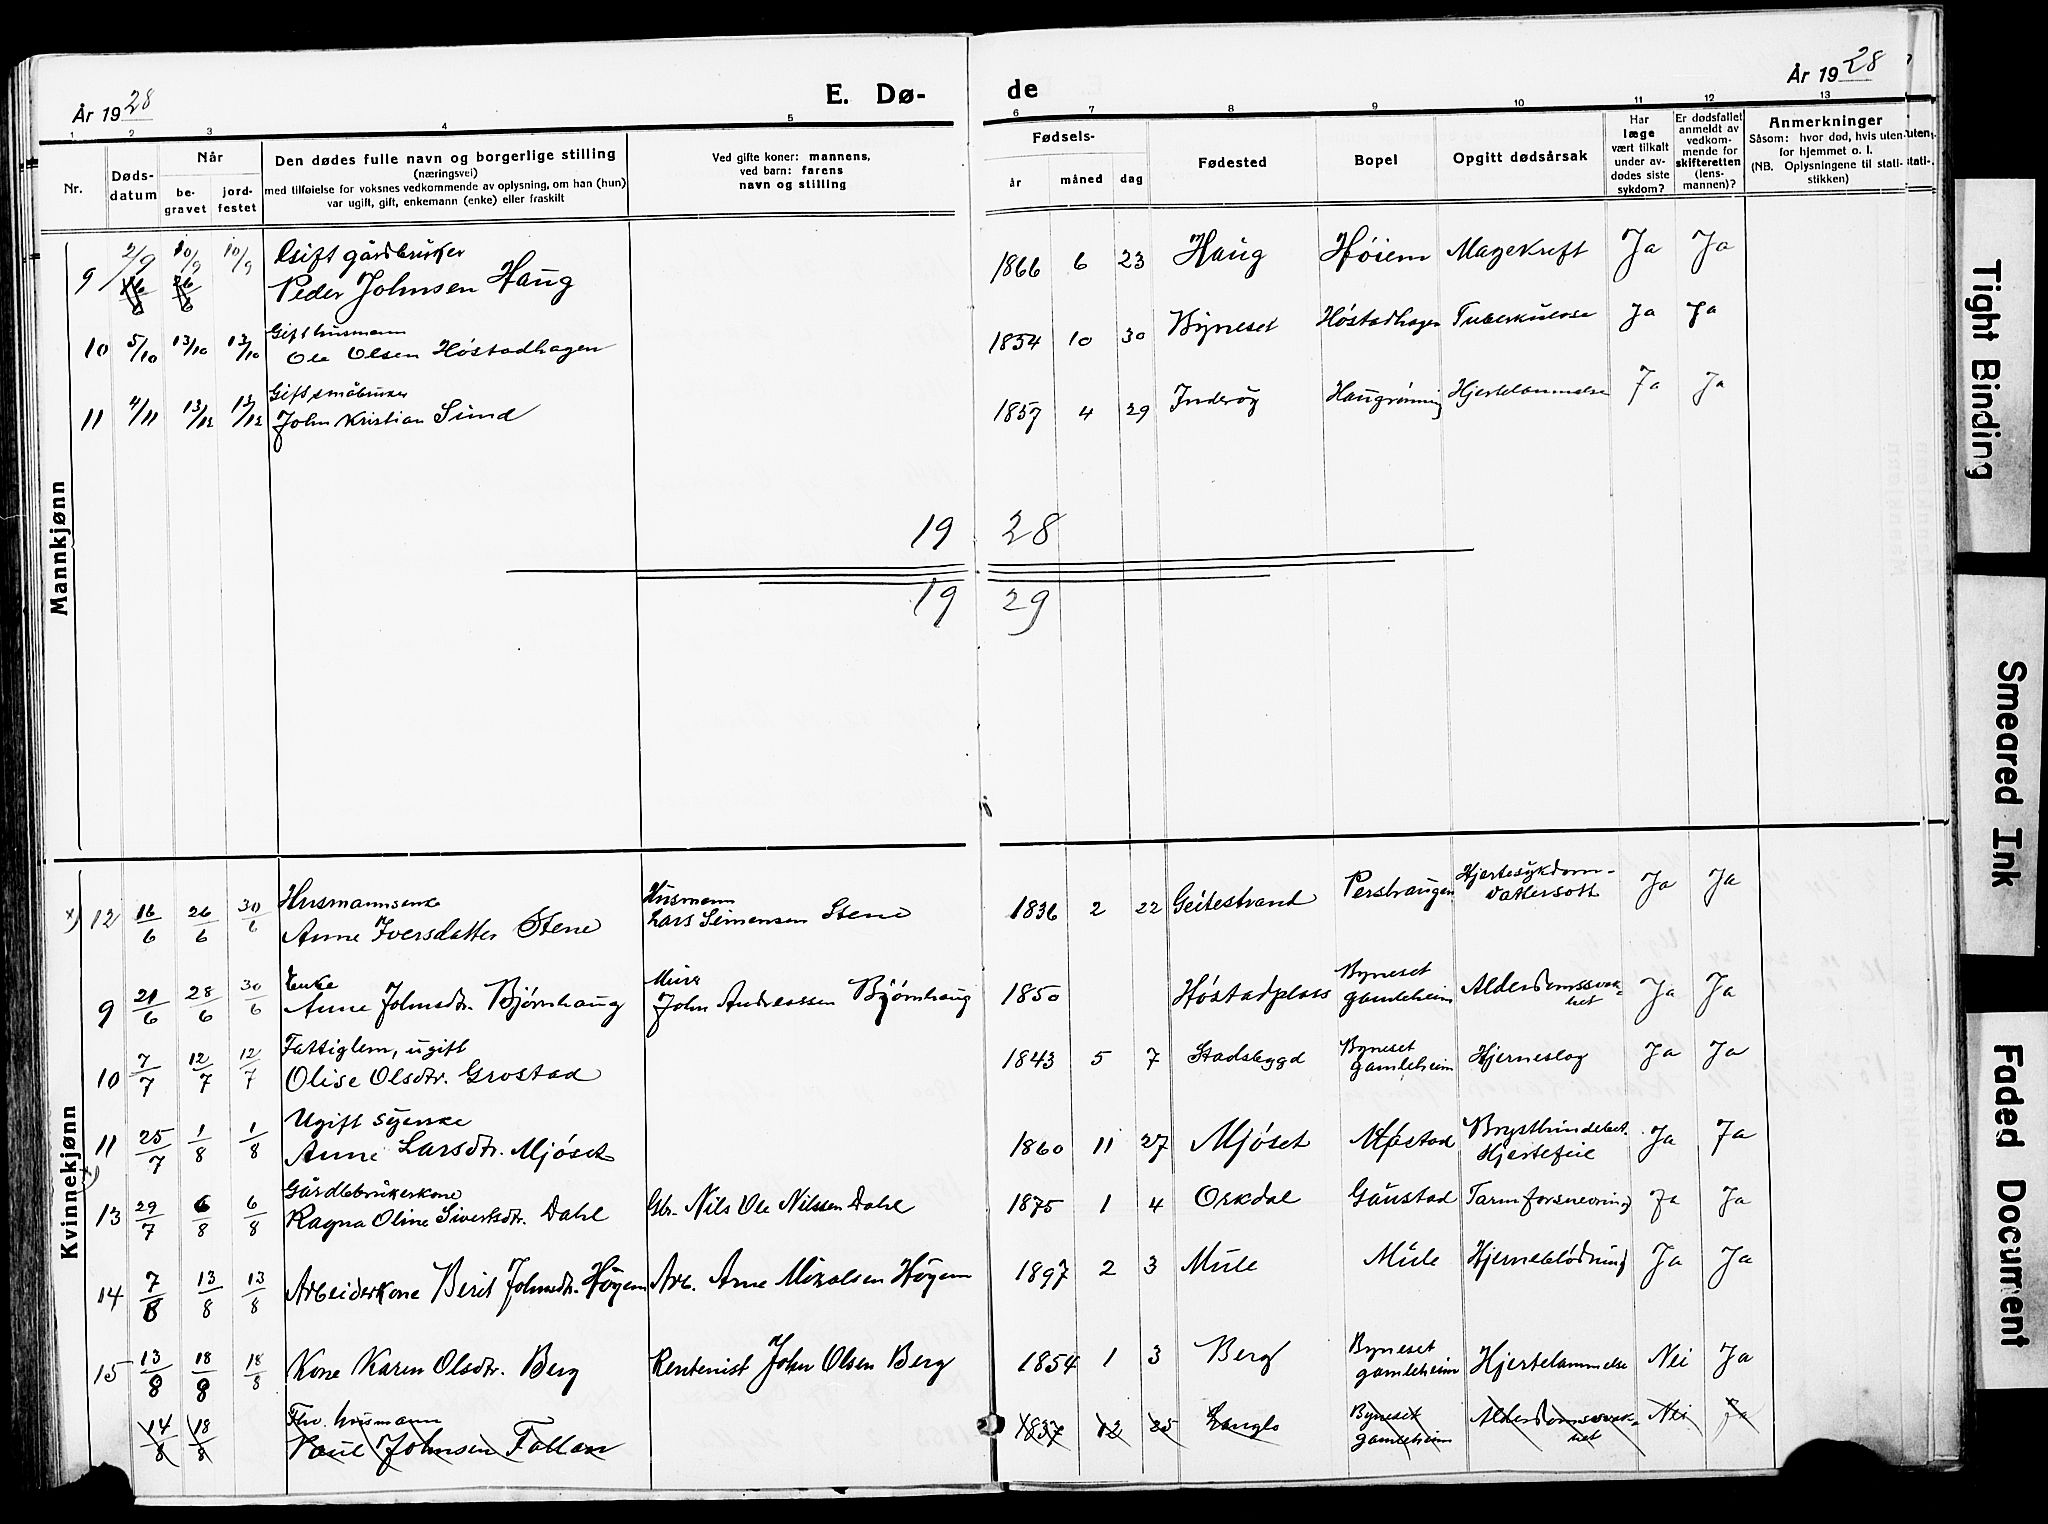 År 1928
E. Dø-
de
År 1928
1 2 3 4 5 6 7 8 9 10 11 12 13
Nr.
Døds-
datum
Når
be-
gravet
jord-
festet
Den dødes fulle navn og borgerlige stilling
(næringsvei)
med tilføielse for voksnes vedkommende av oplysning, om han (hun)
var ugift, gift, enkemann (enke) eller fraskilt
Ved gifte koner: mannens,
ved barn: farens
navn og stilling
Fødsels-
år måned dag
Fødested
Bopel
Opgitt dødsårsak
Har
læge
vært tilkalt
under av-
dødes siste
sykdom?
Er dødsfallet
anmeldt av
vedkom-
mende for
skifteretten
(lens-
mannen)?
Anmerkninger
Såsom: hvor død, hvis uten-
for hjemmet o. l.
(NB. Oplysningene til stati-
stikken)
Mannkjønn
9 2/9 10/9 10/9 Gift gårdbruker
Peder Johnsen Haug 1866 6 23 Haug Høiem Magekreft Ja Ja
10 5/10 13/10 13/10 Gift husmann
Ole Olsen Høstadhagen 1854 10 30 Byneset Høstadhagen Tuberkulose Ja Ja
11 4/11 13/12 13/12 Gift småbruker
John Kristian Sund 1857 4 29 Inderøy Haugrønning Hjertelammelse Ja Ja
19 28
19 29
Kvinnekjønn
x) 12 16/6 26/6 30/6 Husmannsenke
Anne Iversdatter Stene
Husmann
Lars Simonsen Stene 1836 2 22 Geitestrand Perstraugen Hjertesykdom-
vattersott Ja Ja
9 21/6 28/6 30/6 Enke
Anne Johnsdtr. Bjørnhaug
Murer
John Andreassen Bjørnhaug 1850 Høstadplass Byneset
gamleheim Alderdomssvak-
het Ja Ja
10 7/7 12/7 12/7 Fattiglem, ugift
Olise Olsdtr. Grostad 1843 5 7 Stadsbygd Byneset
gamleheim Hjerneslag Ja Ja
11 25/7 1/8 1/8 Ugift syerske
Anne Larsdtr. Mjøset 1860 11 27 Mjøset Mjøstad Brysthindebet.
Hjertefeil Ja Ja
x) 13 29/7 6/8 6/8 Gårdbrukerkone
Ragna Oline Sivertsdtr. Dahl Gbr. Nils Ole Nilssen Dahl 1875 1 4 Orkdal Gaustad Tarmforsnevring Ja Ja
14 7/8 13/8 13/8 Arbeiderkone Berit Johnsdtr. Høyem Arb. Arne Mikalsen Høyem 1897 2 3 Mule Mule Hjerneblødning Ja Ja
15 13/8 18/8 18/8 Kone Karen Olsdtr. Berg Rentenist John Olsen Berg 1854 1 3 Berg Byneset
gamleheim Hjertelammelse Nei Ja
14/8 18/8 Fhv. husmann
Paul Johnsen Fallan 1837 12 25 Langlo Byneset
gamleheim Alderdomssvak-
het Nei Ja
Tight Binding
Smeared Ink
Faded Document